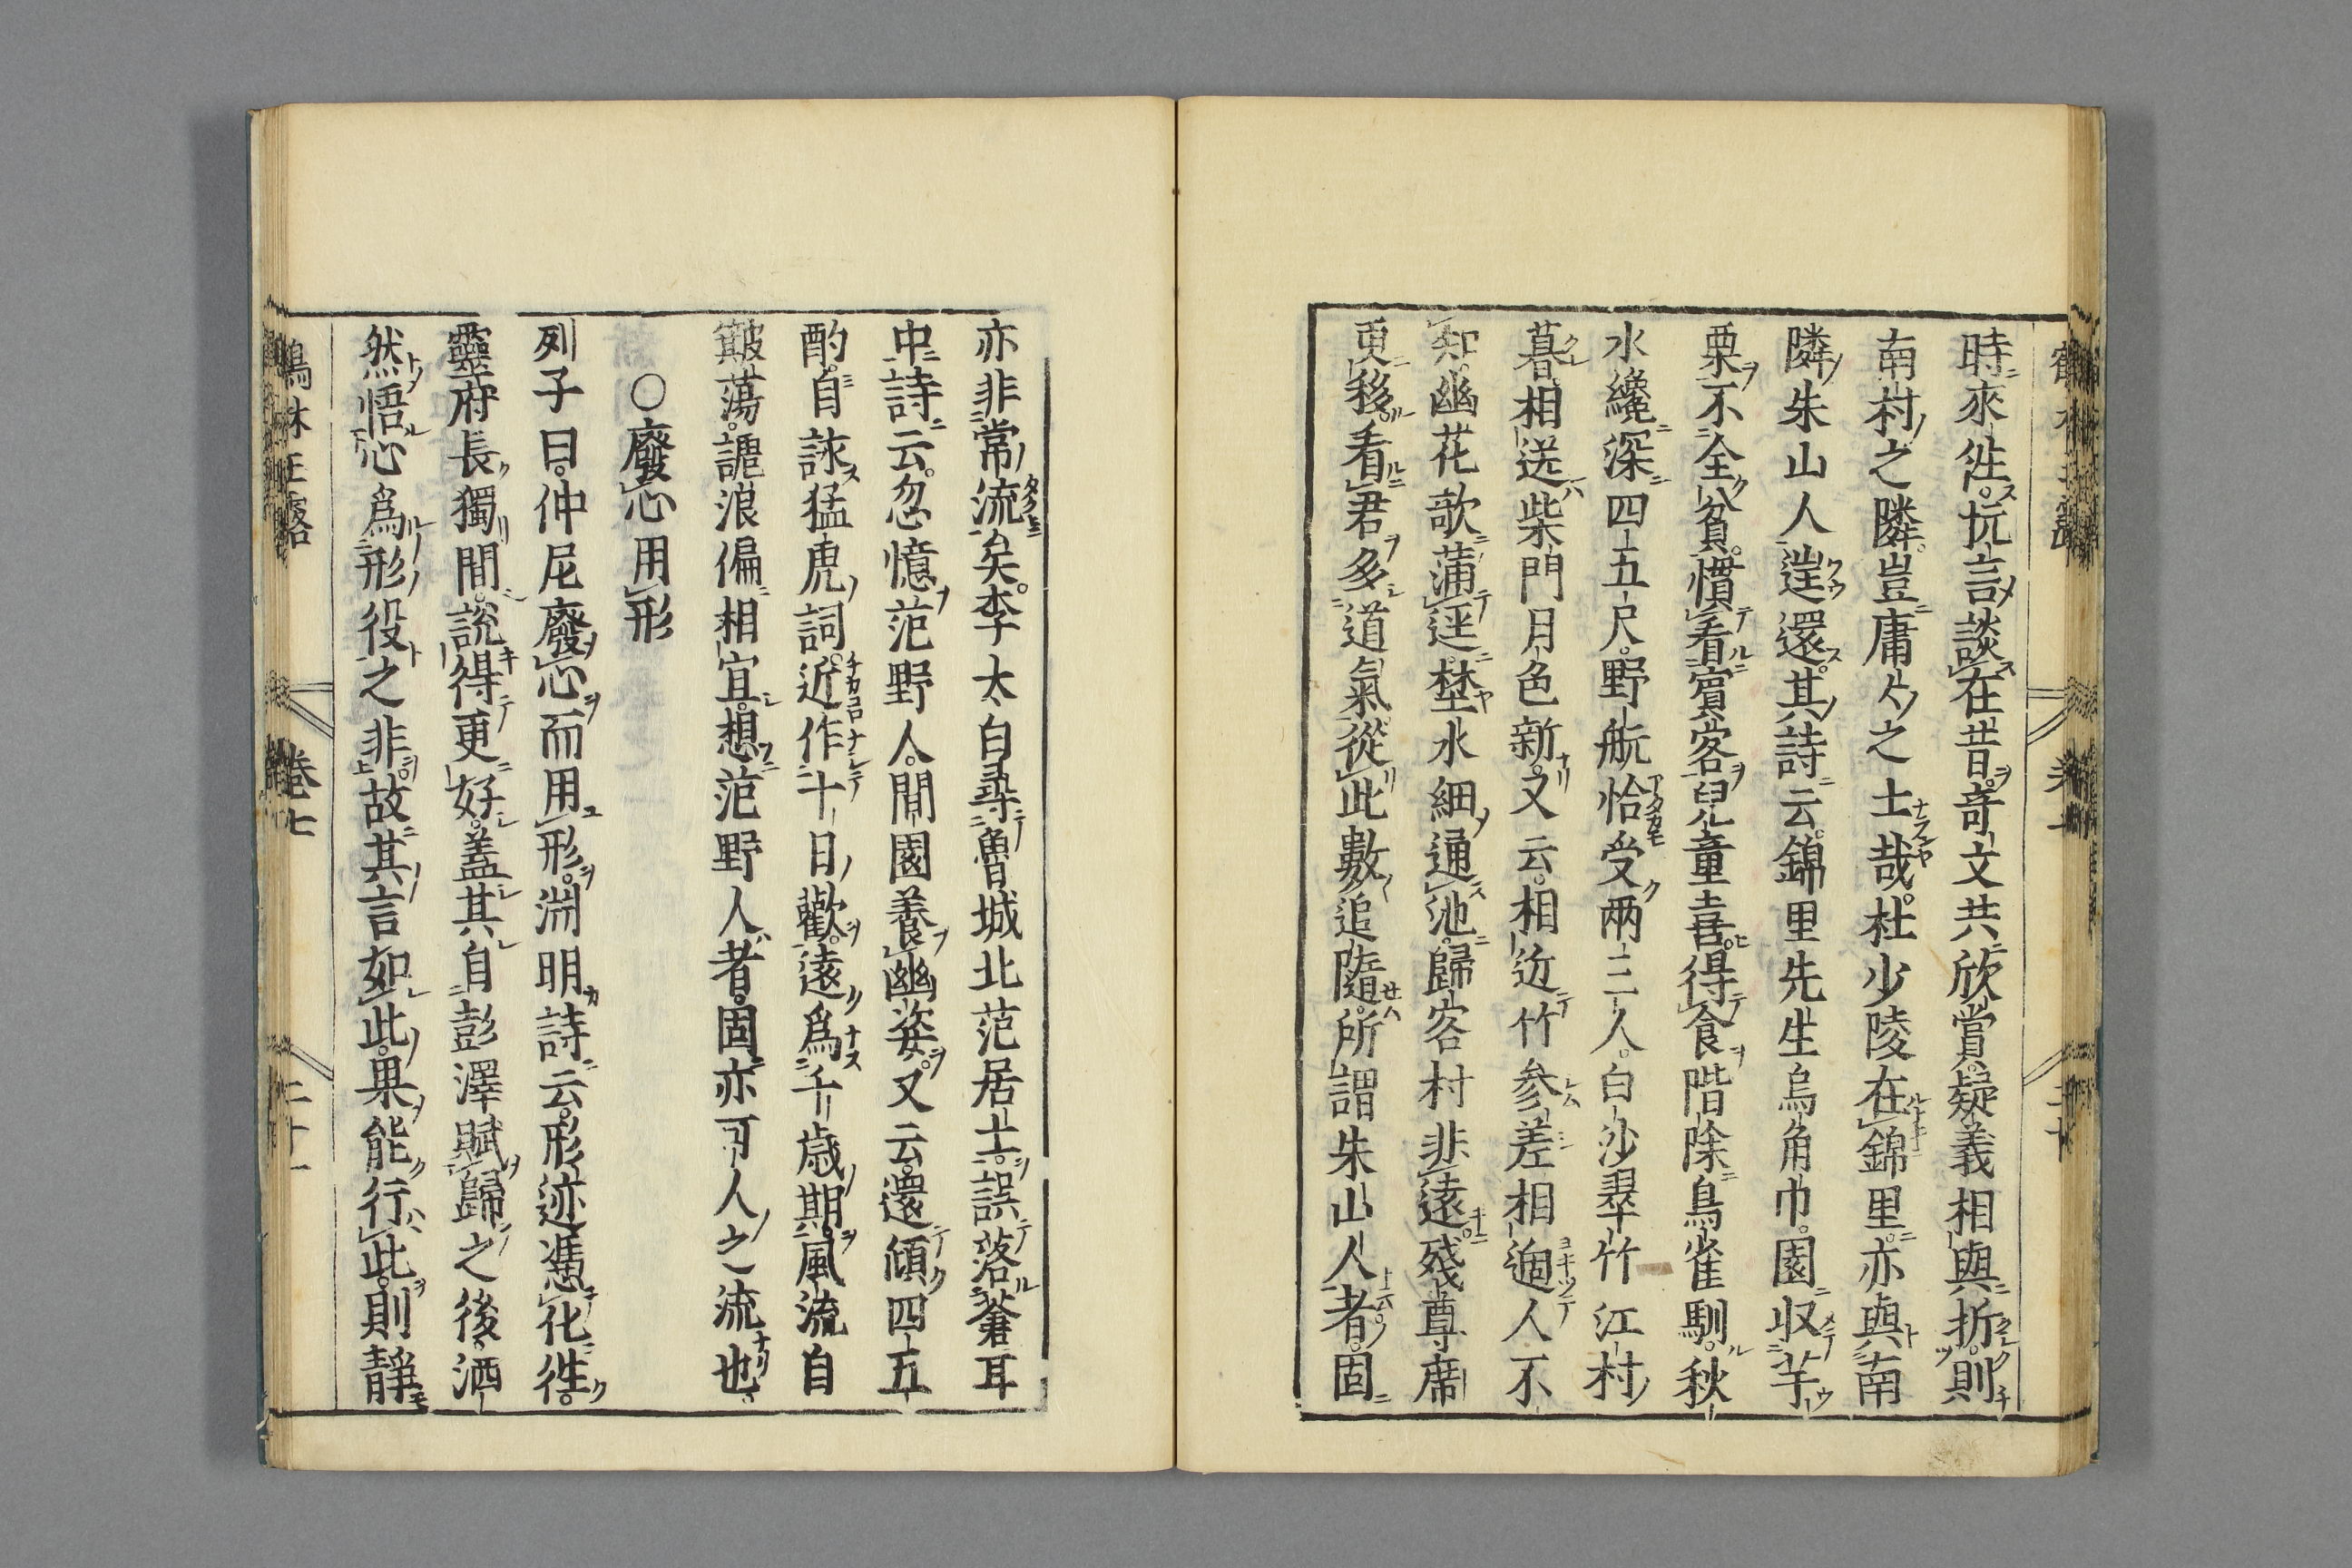 時來往。抗言談在昔。奇文共欣賞。疑義相與折。則
南村之隣。豈庸人之士哉。杜少陵在錦里。亦與南
隣朱山人遑還。其詩云。錦里先生烏角巾。園収芋
栗不全貧。慣看賓客兒童喜。得食階除鳥雀馴。秋
水纔深四五尺。野航恰受兩三人。白沙翠竹江村
暮。相送柴門月色新。又云。相近竹參差。相過人不
知。幽花欹蒲逕。埜水細通池。歸客村非遠。殘尊席
更移。看君多道氣。從此數追隨。所謂朱山人者。固
亦非常流矣。李太白尋魯城北范居士。誤落蒼耳
中詩云。忽憶范野人。閒園養幽姿。又云。還傾四五
酌。自詠猛虎詞。近作十日歡。遠爲千歳期。風流自
簸蕩。謔浪偏相宜。想范野人者。固亦可人之流也。
○廢心用形
列子曰。仲尼廢心而用形。淵明詩云。形迹憑化往。
靈府長獨閒。說得更好。蓋其自彭澤賦歸之後。洒
然悟心爲形役之非。故其言如此。果能行此。則靜
卷七
二十一